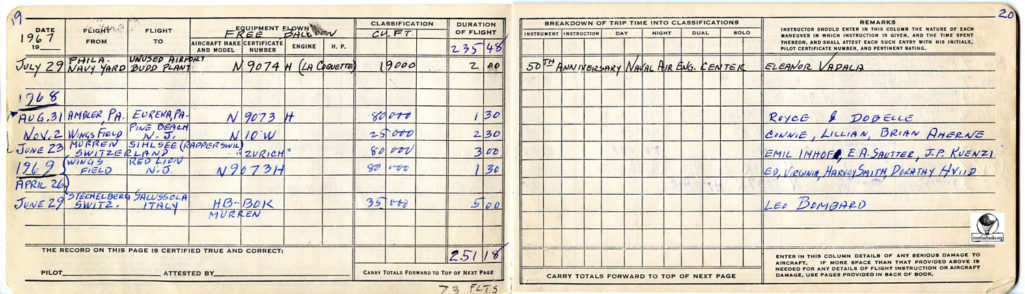 19
20
DATE
1967
19
FLIGHT
FROM
FLIGHT
TO
EQUIPMENT FLOWN
FREE BALLOON
AIRCRAFT MAKE
AND MODEL
CERTIFICATE
NUMBER
ENGINE
H. P.
CLASSIFICATION
CU. FT.
DURATION
OF FLIGHT
235 48
BREAKDOWN OF TRIP TIME INTO CLASSIFICATIONS
INSTRUMENT INSTRUCTION DAY NIGHT DUAL SOLO
REMARKS
INSTRUCTOR SHOULD ENTER IN THIS COLUMN THE NATURE OF EACH
MANEUVER IN WHICH INSTRUCTION IS GIVEN, AND THE TIME SPENT
THEREON, AND SHALL ATTEST EACH SUCH ENTRY WITH HIS INITIALS,
PILOT CERTIFICATE NUMBER, AND PERTINENT RATING.
JULY 29 PHILA. NAVY YARD UNUSED AIRPORT BUDD PLANT N 9074 H (LA COQUETTE) 19000 2 00 50TH ANNIVERSARY NAVAL AIR ENG. CENTER ELEANOR VADALA
1968
AUG. 31 AMBLER, PA. EUREKA, PA. N 9073 H 80000 1 30 ROYCE & DOBELLE
NOV. 2 WINGS FIELD PINE BEACH N. J. N 10 W 25000 2 30 CONNIE, LILLIAN, BRIAN AHERNE
JUNE 23 MURREN SWITZERLAND SIHLSEE (RAPPERSWIL) "ZURICH" 80 000 3 00 EMIL IMHOF, E.A. SAUTTER, J.P. KUENZI
1969 WINGS FIELD RED LION N. J. N 9073 H 80 000 1 30 ED, VIRGINIA, HARVEY SMITH, DORATHY HVIID
APRIL 26
JUNE 29 STECHELBERG SWITZ. SALUSSOLA ITALY HB-BOK MURREN 35 000 5 00 LEO BOMBARD
THE RECORD ON THIS PAGE IS CERTIFIED TRUE AND CORRECT:
251 18
PILOT ATTESTED BY
CARRY TOTALS FORWARD TO TOP OF NEXT PAGE
73 FLTS
CARRY TOTALS FORWARD TO TOP OF NEXT PAGE
ENTER IN THIS COLUMN DETAILS OF ANY SERIOUS DAMAGE TO
AIRCRAFT. IF MORE SPACE THAN THAT PROVIDED ABOVE IS
NEEDED FOR ANY DETAILS OF FLIGHT INSTRUCTION OR AIRCRAFT
DAMAGE, USE PAGES PROVIDED IN BACK OF BOOK.